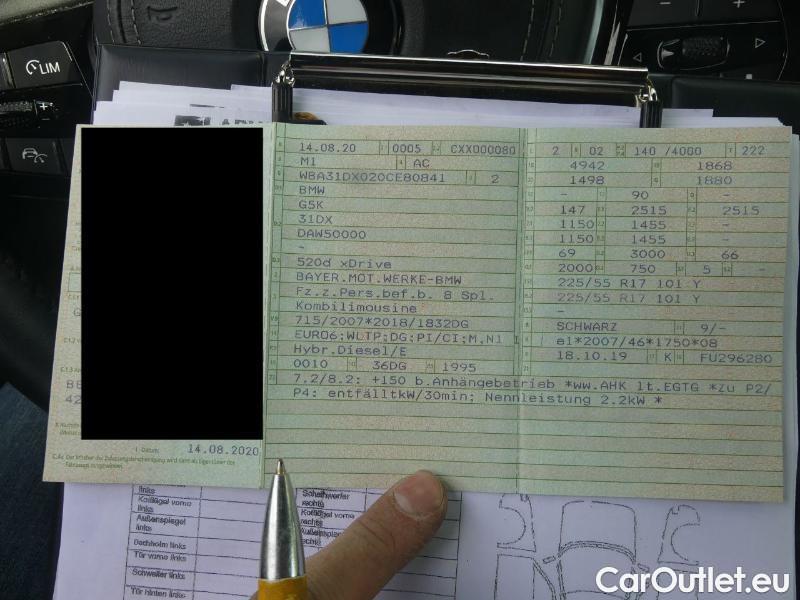 LIM
14.08.20 0005 CXX000080
M1 AC
WBA31DX020CE80841 2
BMW
G5K
31DX
DAW50000
-
520d xDrive
BAYER.MOT.WERKE-BMW
Fz.z.Pers.bef.b. 8 Spl.
Kombilimousine
715/2007*2018/1832DG
EURO6;WLTP;DG;PI/CI;M,N1 I
Hybr.Diesel/E
0010 36DG 1995
7.2/8.2: +150 b.Anhängebetrieb *ww.AHK lt.EGTG *Zu P2/
P4: entfälltkW/30min; Nennleistung 2.2kW *
2 02 140 /4000 222
4942 1868
1498 1880
- 90 -
147 2515 2515
1150 1455 -
1150 1455 -
69 3000 66
2000 750 5 -
225/55 R17 101 Y
225/55 R17 101 Y
-
SCHWARZ 9/-
e1*2007/46*1750*08
18.10.19 K FU296280
Datum: 14.08.2020
C.4c. Der Inhaber der Zulassungsbescheinigung wird nicht als Eigentümer des
Fahrzeugs ausgewiesen.
links
Kotflügel vorne
links
Außenspiegel
links
Dachholm links
Tür vorne links
Schweller links
Tür hinten links
Scheinwerfer
rechts
Kotflügel vorne
rechts
Außenspiegel
rechts
CarOutlet.eu